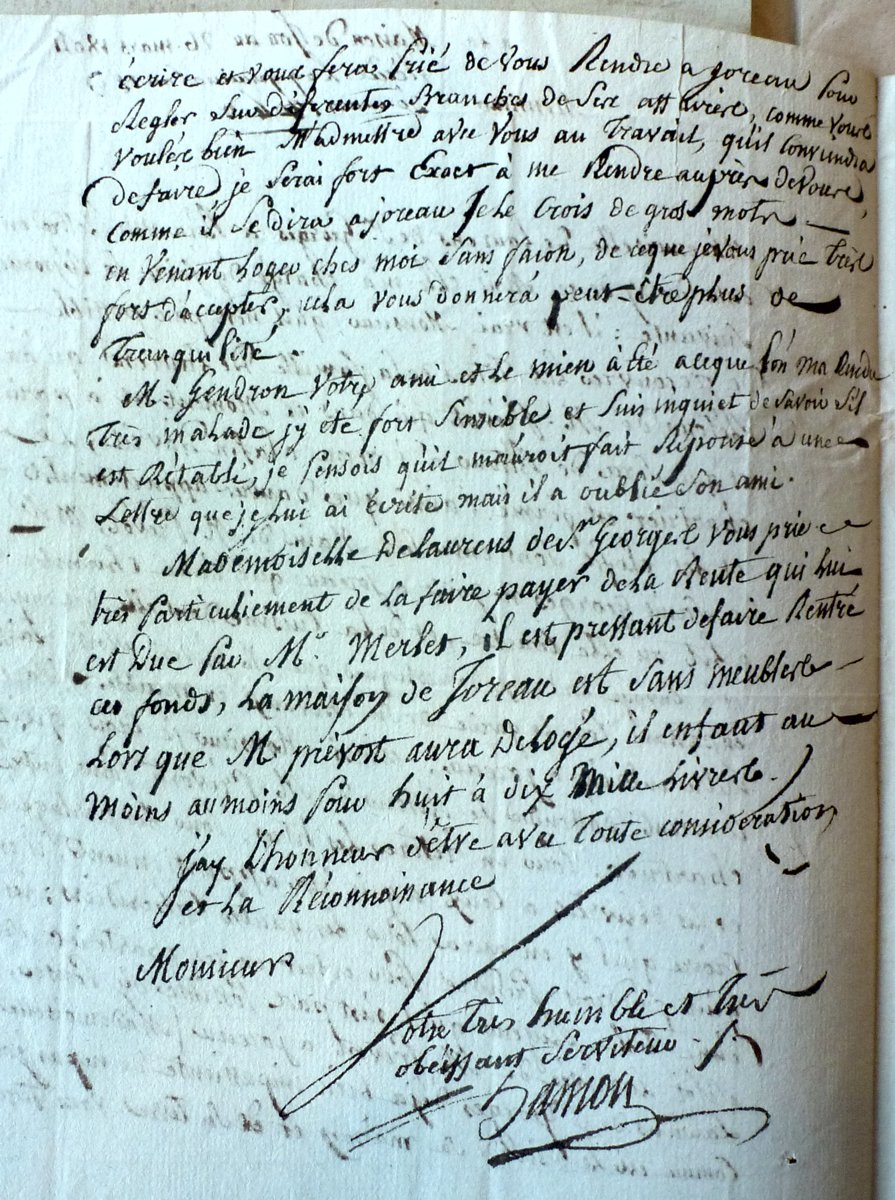 écrire et vous sera prié de vous Rendre a joreau pour
Regler Sur diferentes Branches de Ses affaires, comme vous
voulés bien M'admettre avec vous au Travail, qu'il conviendra
de faire, je Serai fort Exact à me Rendre auprès de vous,
Comme il Se dira a joreau Je le Crois de gros mots
en venant Loger ches moi Sans façon, de ce que je vous prie très
fort d'accepter, cela vous donnera peut-être plus de
Tranquilité.
M. Gendron votre ami et le mien à été a ceque l'ón ma Rendu
Très malade j'y été fort Sensible et suis inquiet de Savoir s'il
est Rétabli, je pensois qu'il m'auroit fait Réponse à une
Lettre que je lui ai écrite mais il à oublié son ami.
Mademoiselle Delaurens de St. George vous prie
très particuliement de la faire payer de la Rente qui lui
est Due par Mr. Merlet, il est pressant de faire Rentré
ces fonds, La maison de Joreau est Sans meubles
Lorsque M prévost aura Delogé, il en faut au
moins au moins pour huit à dix Mille Livres.
j'ay L'honneur d'être avec Toute consideration
et La Réconnoissance
Monsieur
Votre Très humble et Très
obeissant Serviteur